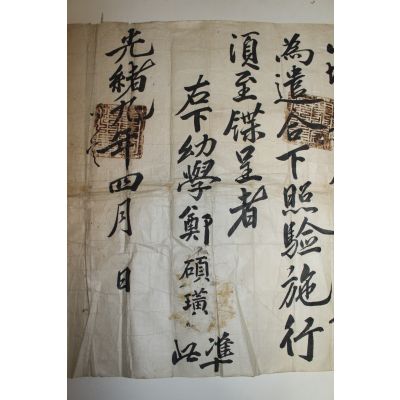 為遣合下照驗施行
須至牒呈者
右下幼學鄭碩璜
準此
光緖九年四月 日